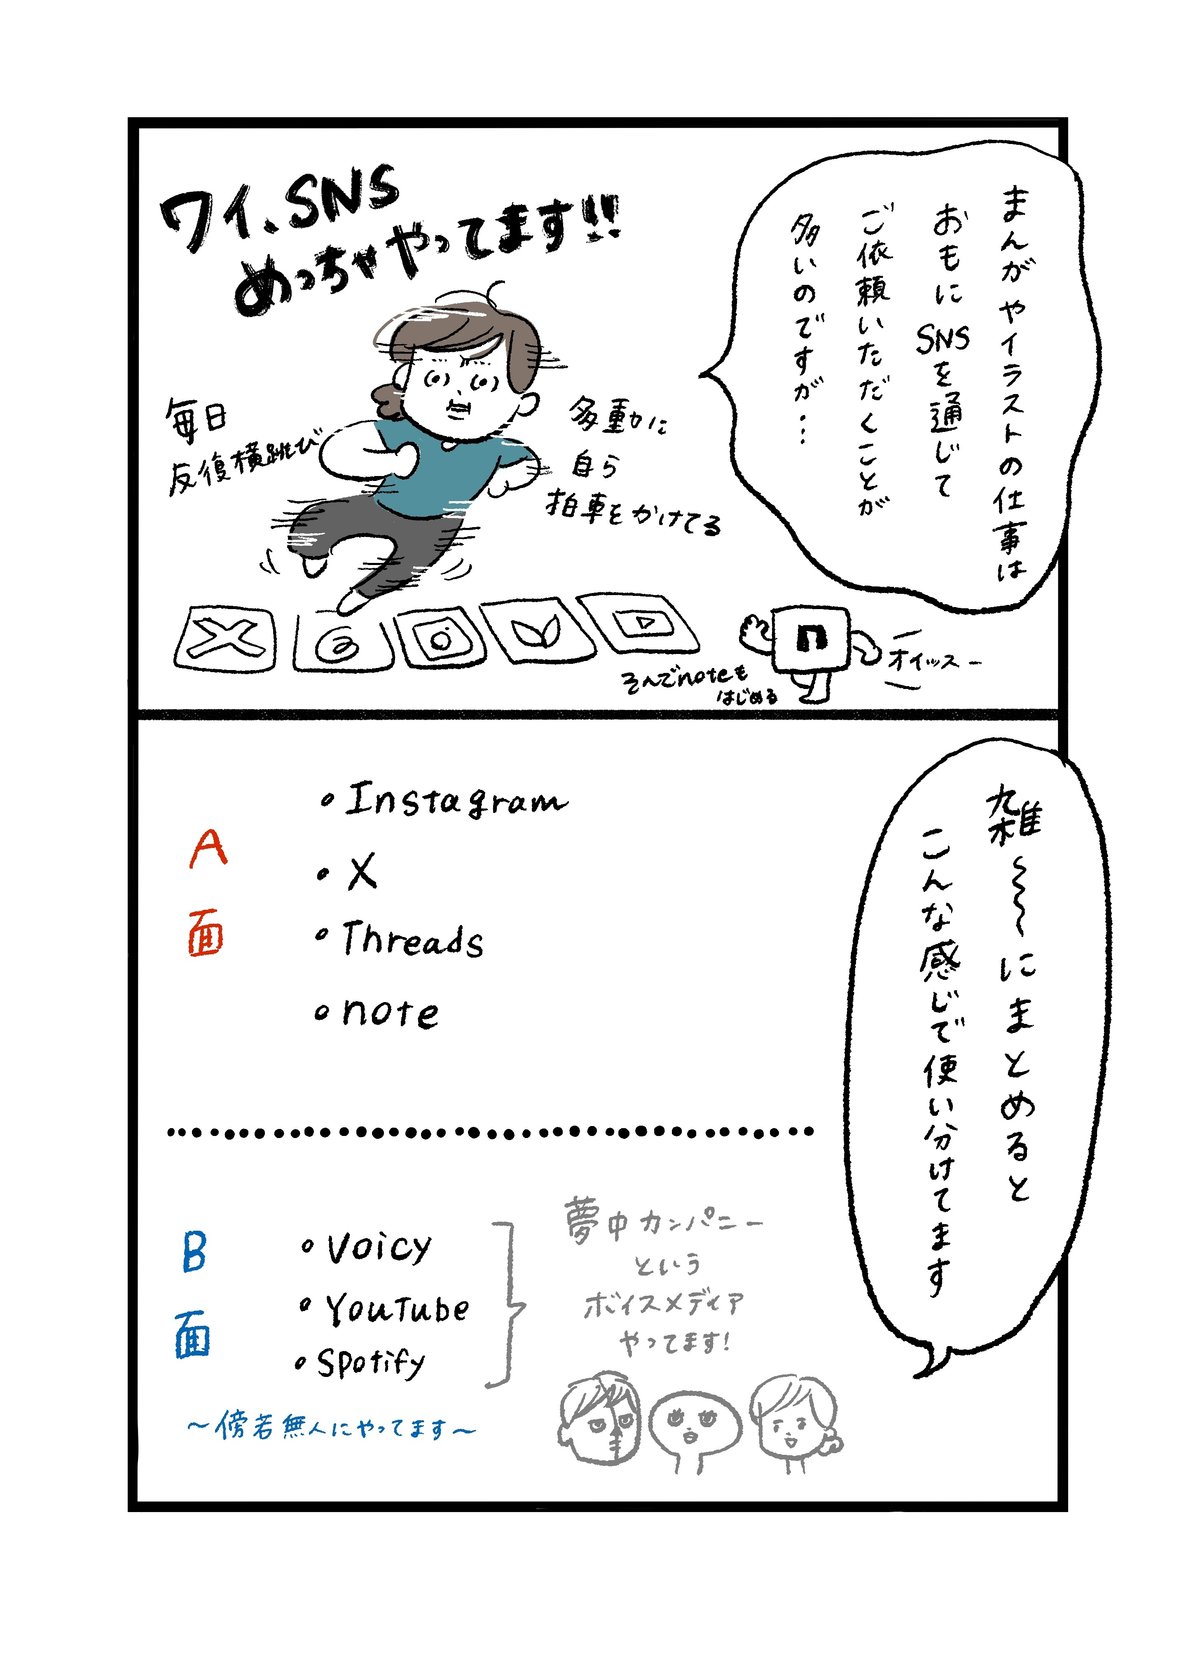 まんがやイラストの仕事は
おもにSNSを通じて
ご依頼いただくことが
多いのですが…
ワイ、SNS
めっちゃやってます!!
毎日
反復横跳び
多動に
自ら
拍車をかけてる
そんでnoteも
はじめる
n
オイッスー
雑〜〜にまとめると
こんな感じで使い分けてます
A面
・Instagram
・X
・Threads
・note
B面
・Voicy
・YouTube
・Spotify
夢中カンパニー
という
ボイスメディア
やってます!
〜傍若無人にやってます〜